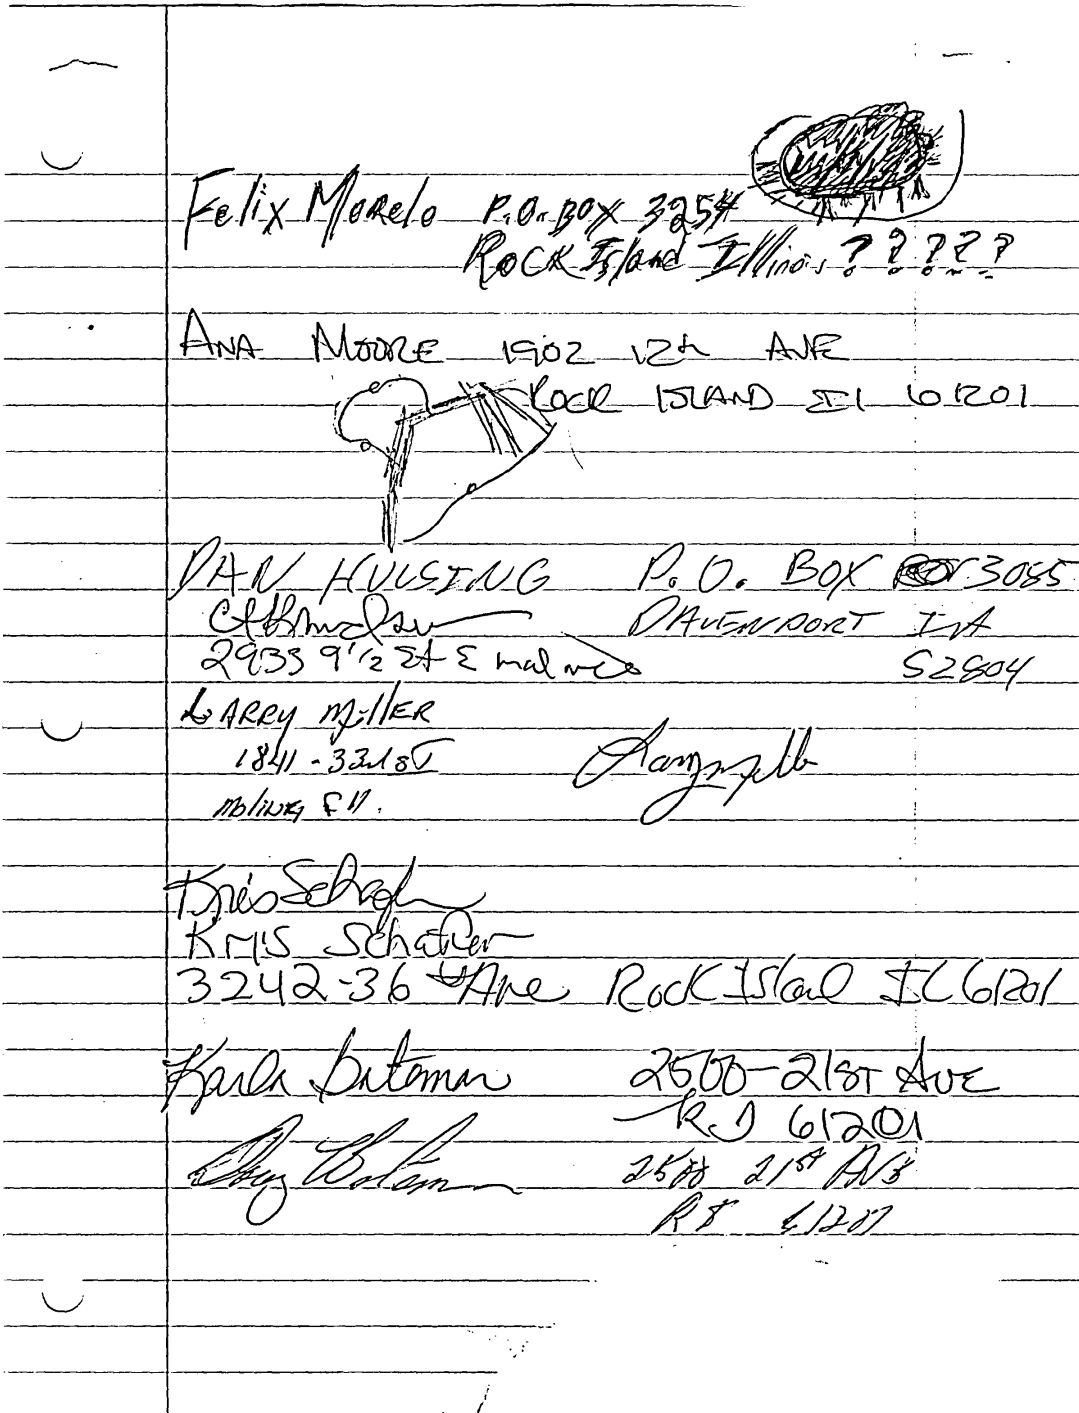 Felix Morelo P.O. BOX 3254
Rock Island Illinois ? ? ? ? ?
ANA MOORE 1902 12th AVE
ROCK ISLAND Il 61201
DAN HULSING P.O. BOX 3085
DAVENPORT IA
2933 9 1/2 St E moline
52804
LARRY Miller
1841 - 33rd ST
Moline Ill.
Kris
Kris Schafer
3242-36th Ave Rock Island IL 61201
Karla Bateman 2500-21ST AVE
RI 61201
Doug Bateman 2500 21st Ave
RI 61201